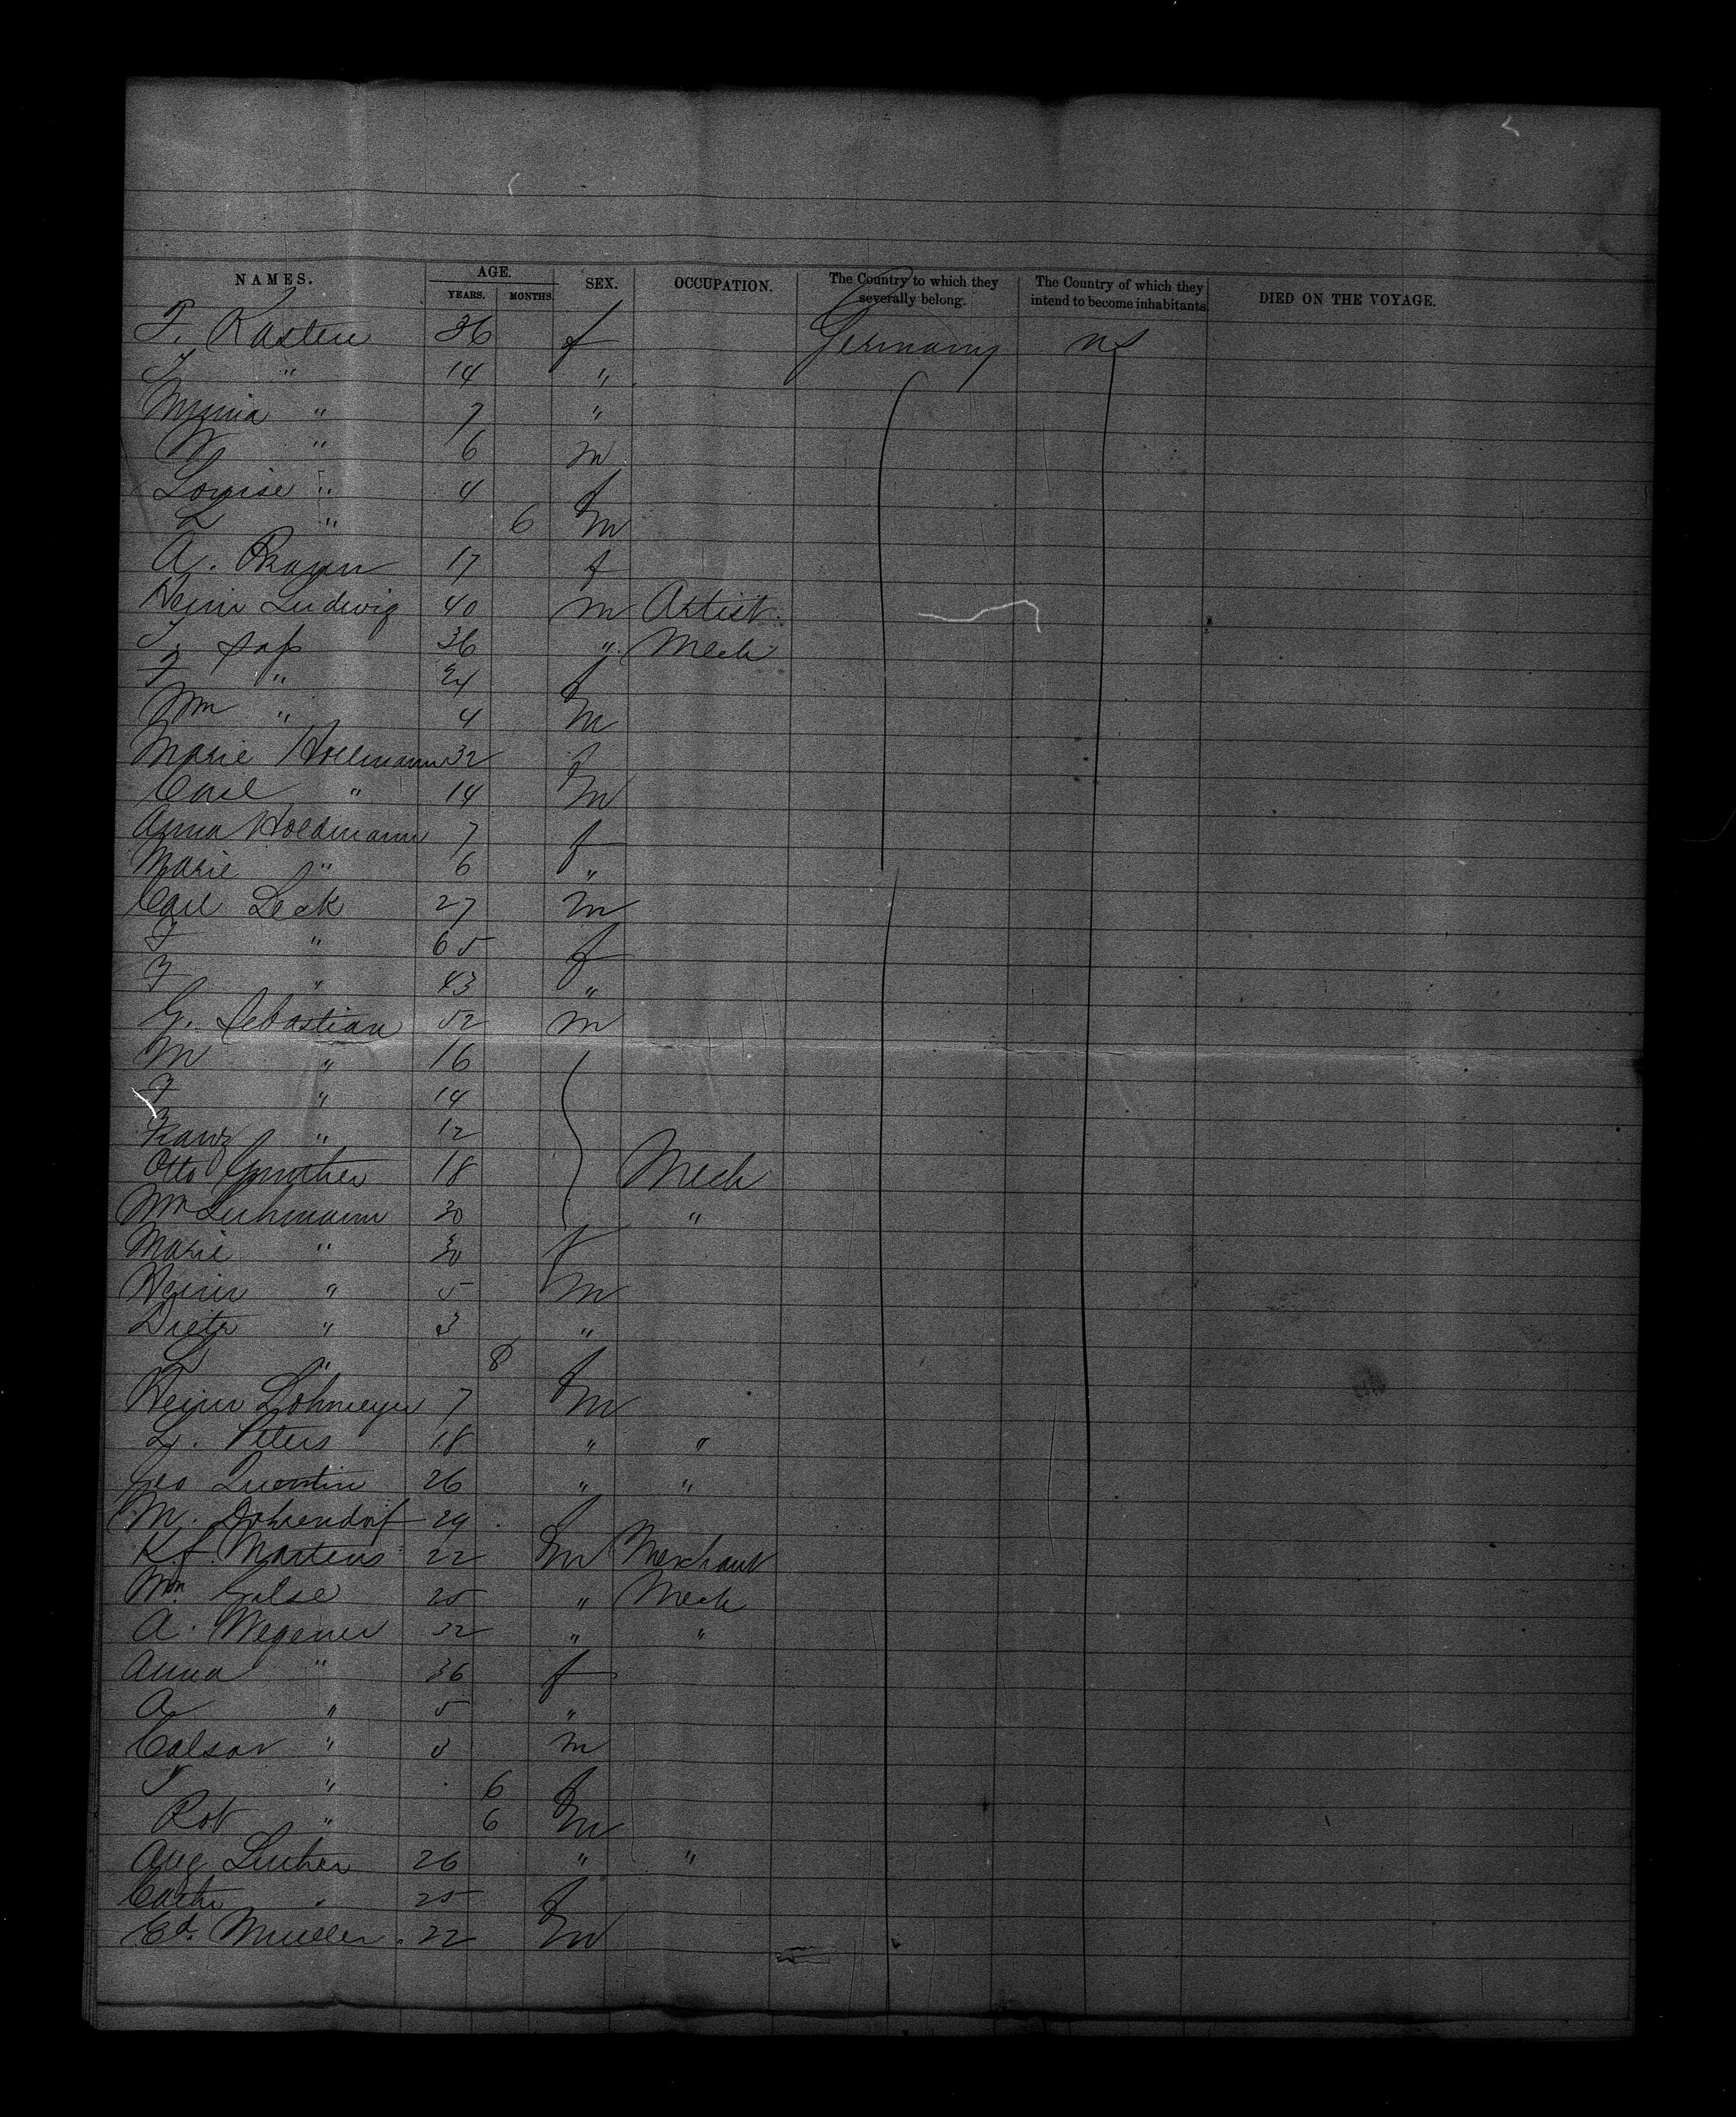 NAMES. AGE. YEARS. MONTHS. SEX. OCCUPATION. The Country to which they severally belong. The Country of which they intend to become inhabitants DIED ON THE VOYAGE.
F. Kasten 36 f Germany us
" 14 "
Minna " 7 "
W " 6 m
Louise " 4 f
L " 6 m
A. 17 f
Heinr Ludwig 40 m Artist
36 " Mech
F " 24 f
Wm " 4 m
Marie Hollmann 32 f
Carl " 14 m
Anna Holdmann 7 f
Marie " 6 "
Carl Leak 27 m
F " 65 f
F " 43 "
G. Sebastian 52 m
M " 16
F " 14
Franz " 12
Otto Gunther 18 Mech
Wm Luhmann 30 "
Marie " 30 f
Heinr " 5 m
Dietr " 3 "
" 8 f
Heinr Lohmeyer 7 m
L. Peters 18 " "
Geo Quentin 26 " "
M. Dohrendorf 29 f
K.f. Martens 22 m Merchant
Wm. 25 " Mech
A. Wegener 32 " "
Anna " 36 f
A " 5 "
" 3 m
" 6 f
Rob " 6 m
Aug Luther 26 " "
Cathr " 25 f
Ed. Mueller 22 m